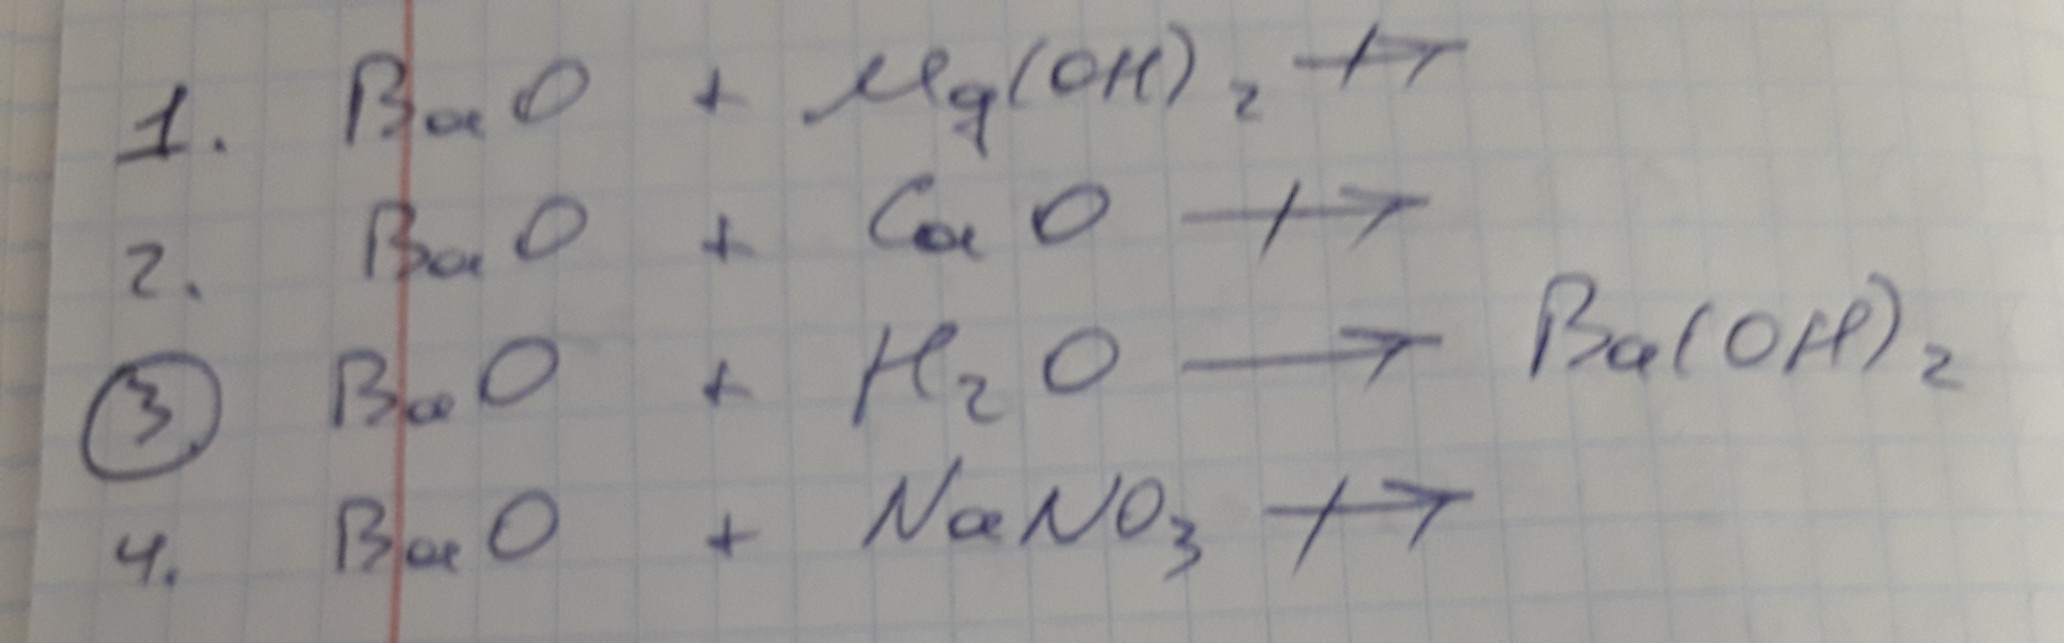 1. BaO + Mg(OH)₂ ↛
2. BaO + CaO ↛
3. BaO + H₂O → Ba(OH)₂
4. BaO + NaNO₃ ↛